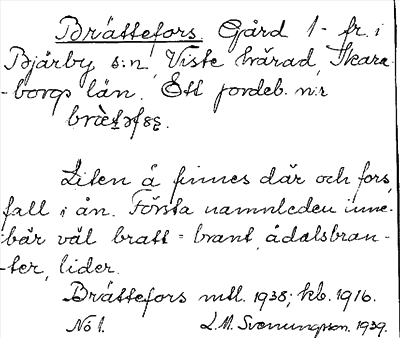 Brättefors. Gård 1 - fr. i
Bjärby s:n, Viste härad, Skara-
-borgs län. Ett jordeb. n:r

Liten å finnes där och fors,
fall i ån. Första namnleden inne-
-bär väl bratt = brant, ådalsbran-
-ter, lider.
Brättefors mtl. 1938; kb. 1916.
No 1. L.M. Svenungsson. 1939.